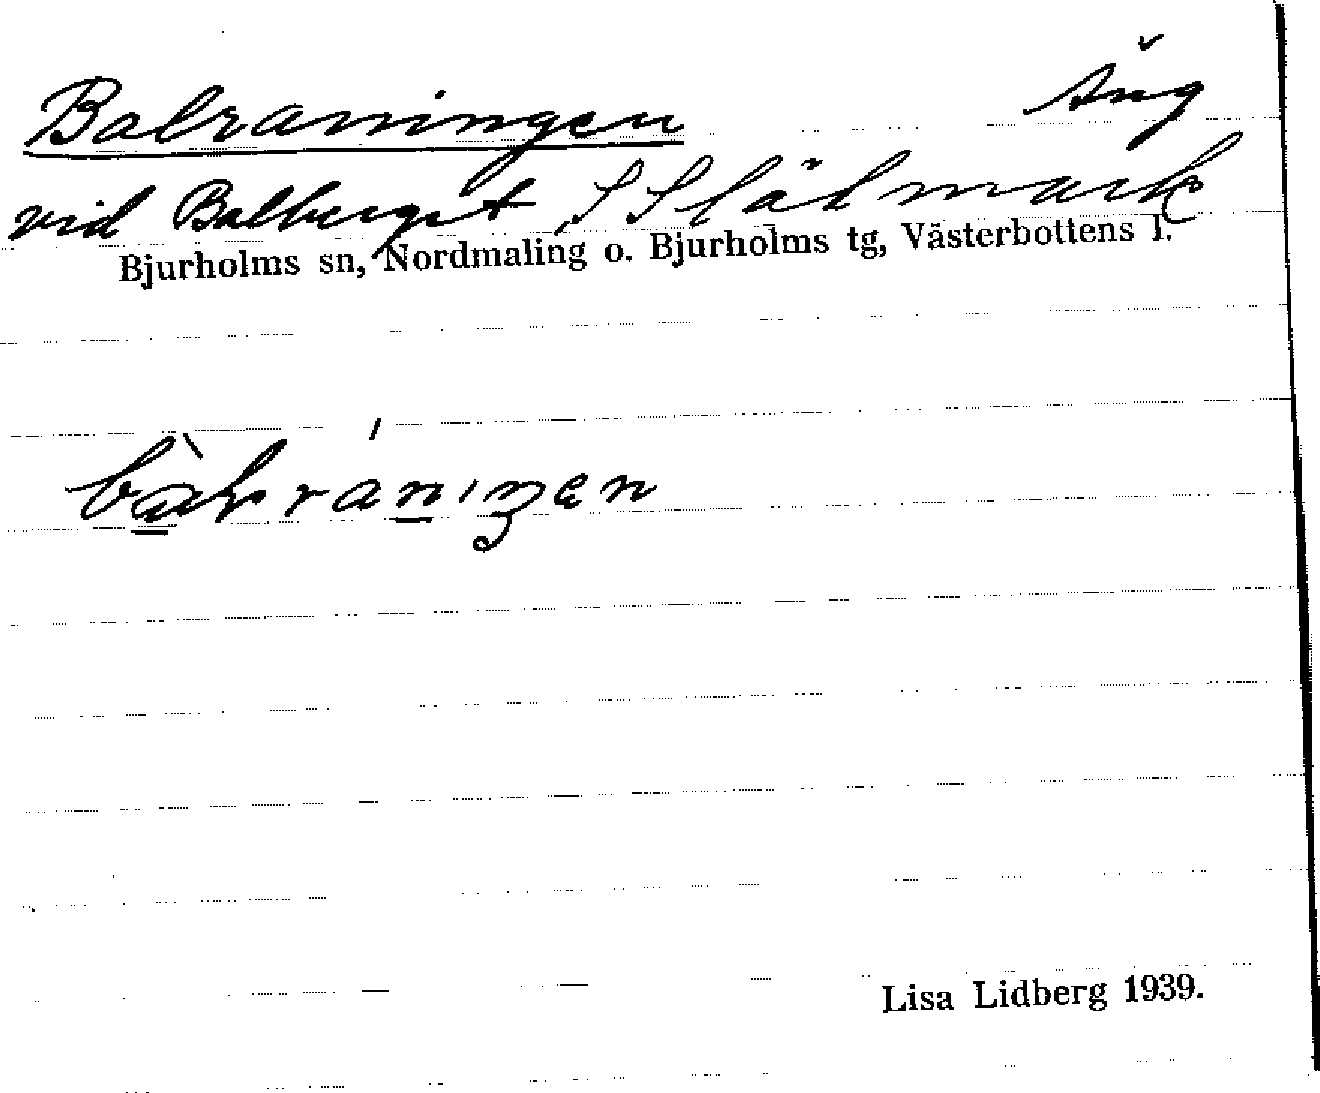 Balranningen Äng
vid Balberget, S
Bjurholms sn, Nordmaling o. Bjurholms tg, Västerbottens l.
Lisa Lidberg 1939.